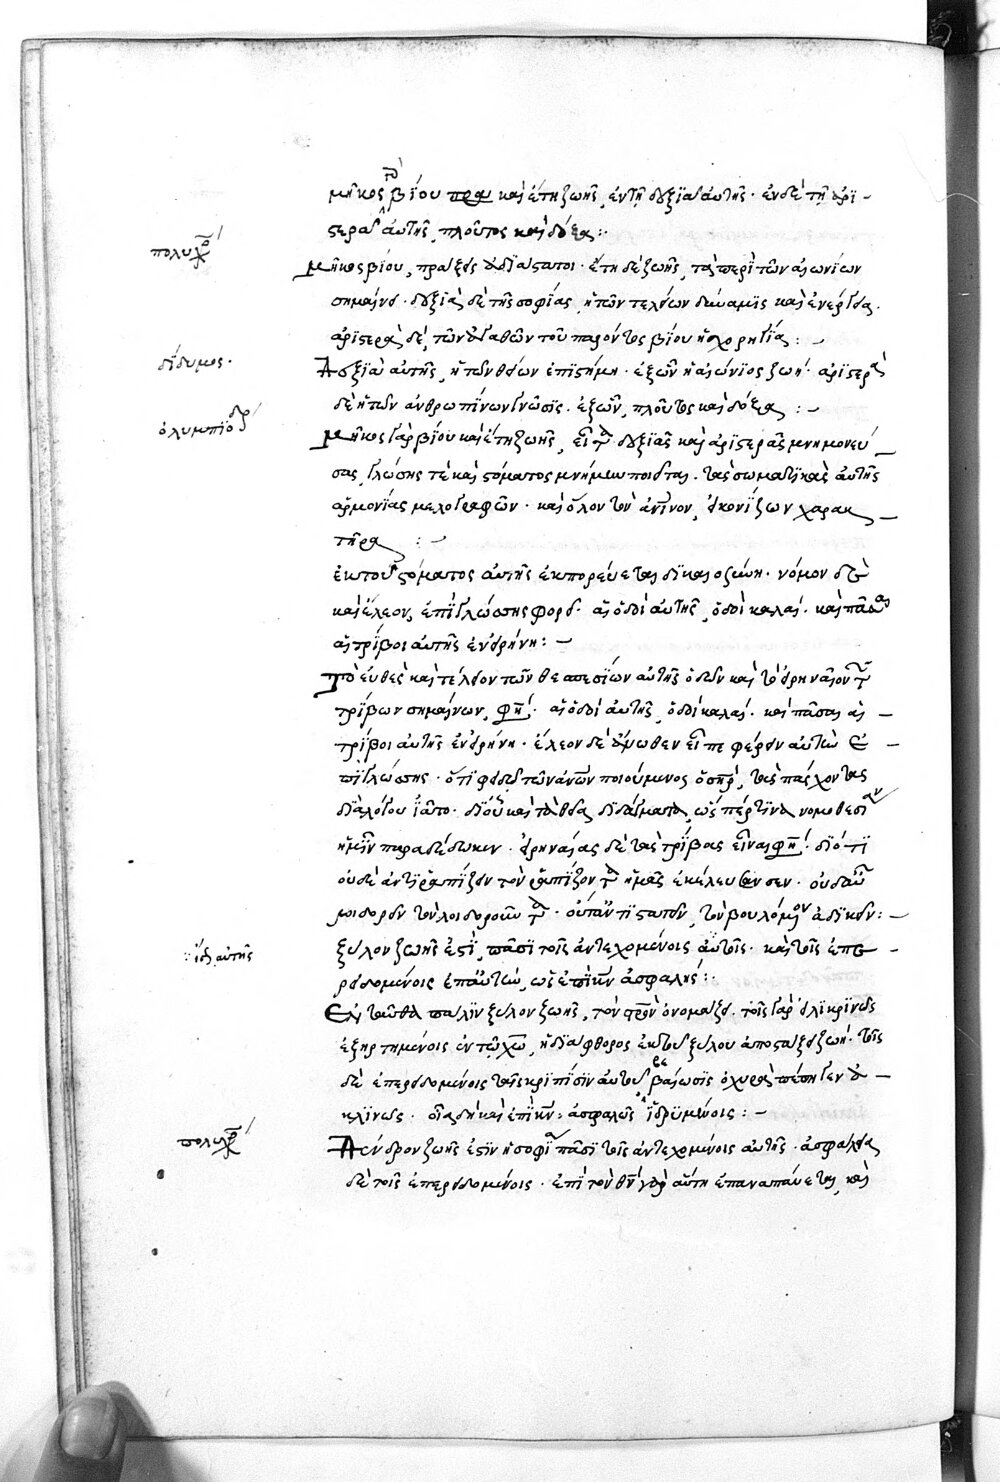 μῆκος βίου καὶ ἔτη ζωῆς, ἐν τῇ δεξιᾷ αὐτῆς· ἐν δὲ τῇ ἀρι-
στερᾷ αὐτῆς, πλοῦτος καὶ δόξα:
πολυχρ
μῆκος βίου, πράξεις ἀδιάστατοι· ἔτη δὲ ζωῆς, τὰ περὶ τῶν αἰωνίων
σημαίνει· δεξιὰ δὲ τῆς σοφίας, ἡ τῶν τελείων δύναμις καὶ ἐνέργεια·
ἀριστερὰ δὲ, τῶν ἀγαθῶν τοῦ παρόντος βίου ἡ χορηγία:-
δίδυμος·
Δεξιὰ αὐτῆς, ἡ τῶν θείων ἐπιστήμη· ἐξ ὧν ἡ αἰώνιος ζωή· ἀριστερὰ
δὲ ἡ τῶν ἀνθρωπίνων γνῶσις· ἐξ ὧν, πλοῦτος καὶ δόξα:-
ὀλυμπιοδρ
μῆκος γὰρ βίου καὶ ἔτη ζωῆς, δεξιᾶς καὶ ἀριστερᾶς μνημονεύ-
σας, γλώσσης τὲ καὶ στόματος μνήμην ποιεῖται· τὰς σωματικὰς αὐτῆς
ἁρμονίας μελογραφῶν· καὶ ὅλον τὸν εἰκονίζων χαρακ-
τῆρα:-
ἐκ τοῦ στόματος αὐτῆς ἐκπορεύεται δικαιοσύνη· νόμον δὲ
καὶ ἔλεον, ἐπὶ γλώσσης φορεῖ· αἱ ὁδοὶ αὐτῆς, ὁδοὶ καλαί· καὶ πᾶσαι
αἱ τρίβοι αὐτῆς ἐν εἰρήνῃ:-
Τὸ εὐθὲς καὶ τέλειον τῶν θεασεσίων αὐτῆς ὁδῶν καὶ τὸ εἰρηναῖον τῶν
τρίβων σημαίνων, φησί· αἱ ὁδοὶ αὐτῆς, ὁδοὶ καλαί· καὶ πᾶσαι αἱ-
τρίβοι αὐτῆς ἐν εἰρήνῃ· ἔλεον δὲ ἄνωθεν εἶπε φέρειν αὐτὴν ἐ-
πὶ γλώσσης· ὅτι φειδὼ τῶν ἀνῶν ποιούμενος ὁ σηρ, τοὺς πάσχοντας
διὰ λόγου ἰᾶτο· δι' οὗ καὶ τὰ θεῖα διδάγματα, ὥσπέρ τινα νομοθεσίαν
ἡμῖν παραδέδωκεν· εἰρηναίας δὲ τὰς τρίβους εἶναι φησί· διότι
οὐδὲ ἀντιραπίζειν τὸν ῥαπίζοντα ἡμᾶς ἐκέλευσεν·
λοιδορεῖν τὸν λοιδοροῦντα· τὸν βουλόμενον ἀδικεῖν:-
ἰδ αὐτῆς
ξύλον ζωῆς ἐστὶ, πᾶσι τοῖς ἀντεχομένοις αὐτῆς· καὶ τοῖς ἐπε-
ρειδομένοις ἐπ' αὐτὴν, ὡς ἐπὶ κν ἀσφαλής:
Ἐνταῦθα πάλιν ξύλον ζωῆς, τὸν ὀνομάζει· τοῖς γὰρ εἰλικρινῶς
ἐξηρτημένοις ἐν τῷ χω, ἡ ἀδιάφθορος ἐκ τοῦ ξύλου ἀποστάζει ζωή· τοῖς
δὲ ἐπερειδομένοις βεβαίωσις ὀχυρὰ
κλινῶς· οἷα δὴ καὶ ἐπὶ κν ἀσφαλῶς ἱδρυμένοις:-
πολυχρ
Δένδρον ζωῆς ἐστὶν ἡ σοφία πᾶσι τοῖς ἀντεχομένοις αὐτῆς· ἀσφάλεια
δὲ τοῖς ἐπερειδομένοις· ἐπὶ τὸν θν γὰρ αὕτη ἐπαναπαύεται, καὶ